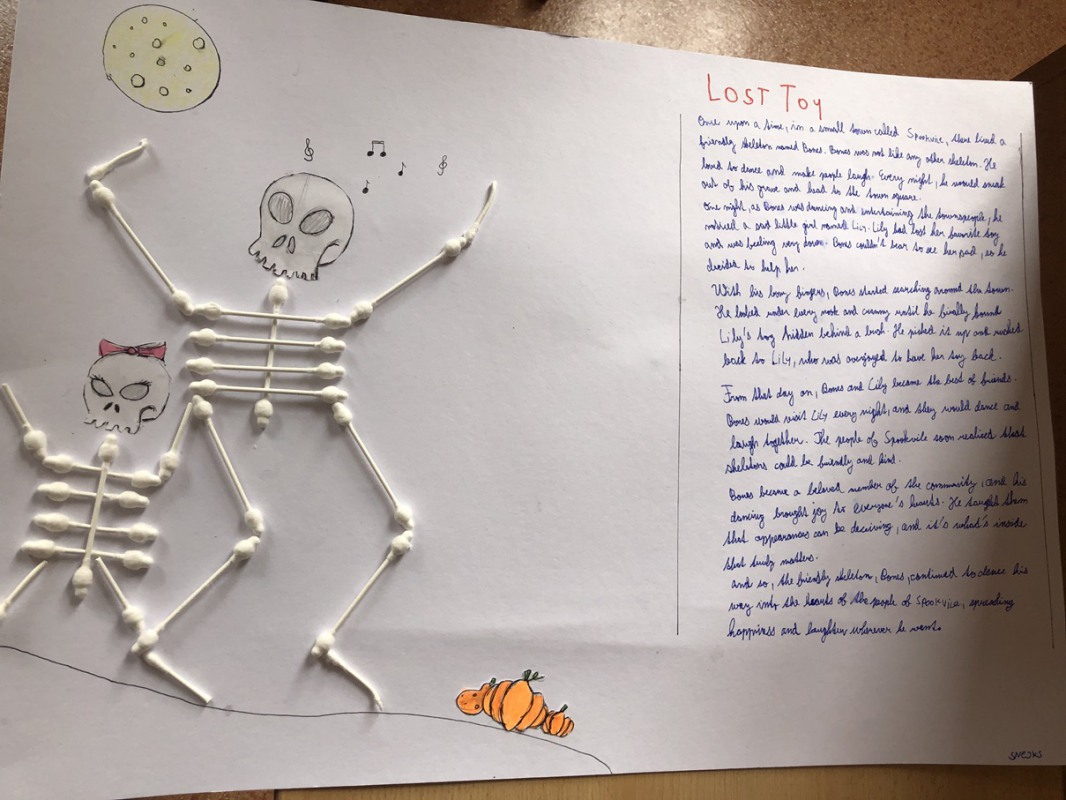 LOST TOY
Once upon a time, in a small town called Spookvice, there lived a
friendly skeleton named Bones. Bones was not like any other skeleton. He
loved to dance and make people laugh. Every night, he would sneak
out of his grave and head to the town square.
One night, as Bones was dancing and entertaining the townspeople, he
noticed a sad little girl named Lily. Lily had lost her favorite toy
and was feeling very down. Bones couldn't bear to see her sad, so he
decides to help her.
With his bony fingers, Bones started searching around the town.
He looked under every nook and cranny until he finally found
Lily's toy hidden behind a bush. He picked it up and rushed
back to Lily, who was overjoyed to have her toy back.
From that day on, Bones and Lily became the best of friends.
Bones would visit Lily every night, and they would dance and
laugh together. The people of Spookvile soon realised that
skeletons could be friendly and kind.
Bones became a beloved member of the community, and his
dancing brought joy to everyone's hearts. He taught them
that appearances can be deceiving, and it's what's inside
that truly matters.
and so, the friendly skeleton, Bones, continued to dance his
way into the hearts of the people of Spookvice, spreading
happiness and laughter wherever he went.